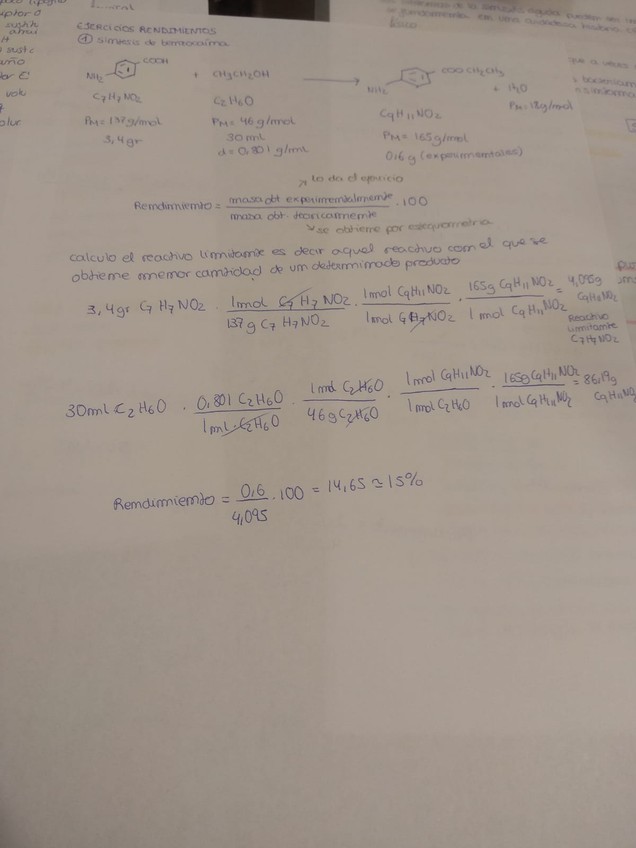 EJERCICIOS RENDIMIENTOS
① Síntesis de benzocaína
COOH
NH2
+ CH3CH2OH
COO CH2CH3
NH2
+ H2O
C7H7NO2
C2H6O
C9H11NO2
PM = 18g/mol
PM = 137g/mol
PM = 46 g/mol
PM = 165g/mol
3,4gr
30ml
0,6g (experimentales)
d = 0,801 g/ml
lo da ejercicio
Rendimiento = masa obt experimentalmente / masa obt. teoricamente · 100
se obtiene por estequiometria
calculo el reactivo limitante es decir aquel reactivo con el que se
obtiene menor cantidad de un determinado producto
3,4gr C7H7NO2 · 1mol C7H7NO2 / 137g C7H7NO2 · 1mol C9H11NO2 / 1mol C7H7NO2 · 165g C9H11NO2 / 1 mol C9H11NO2 = 4,095g
Reactivo
limitante
C7H7NO2
30ml C2H6O · 0,801 C2H6O / 1ml C2H6O · 1mol C2H6O / 46g C2H6O · 1mol C9H11NO2 / 1mol C2H6O · 165g C9H11NO2 / 1mol C9H11NO2 = 86,19g
C9H11NO
Rendimiento = 0,6 / 4,095 · 100 = 14,65 ≃ 15%